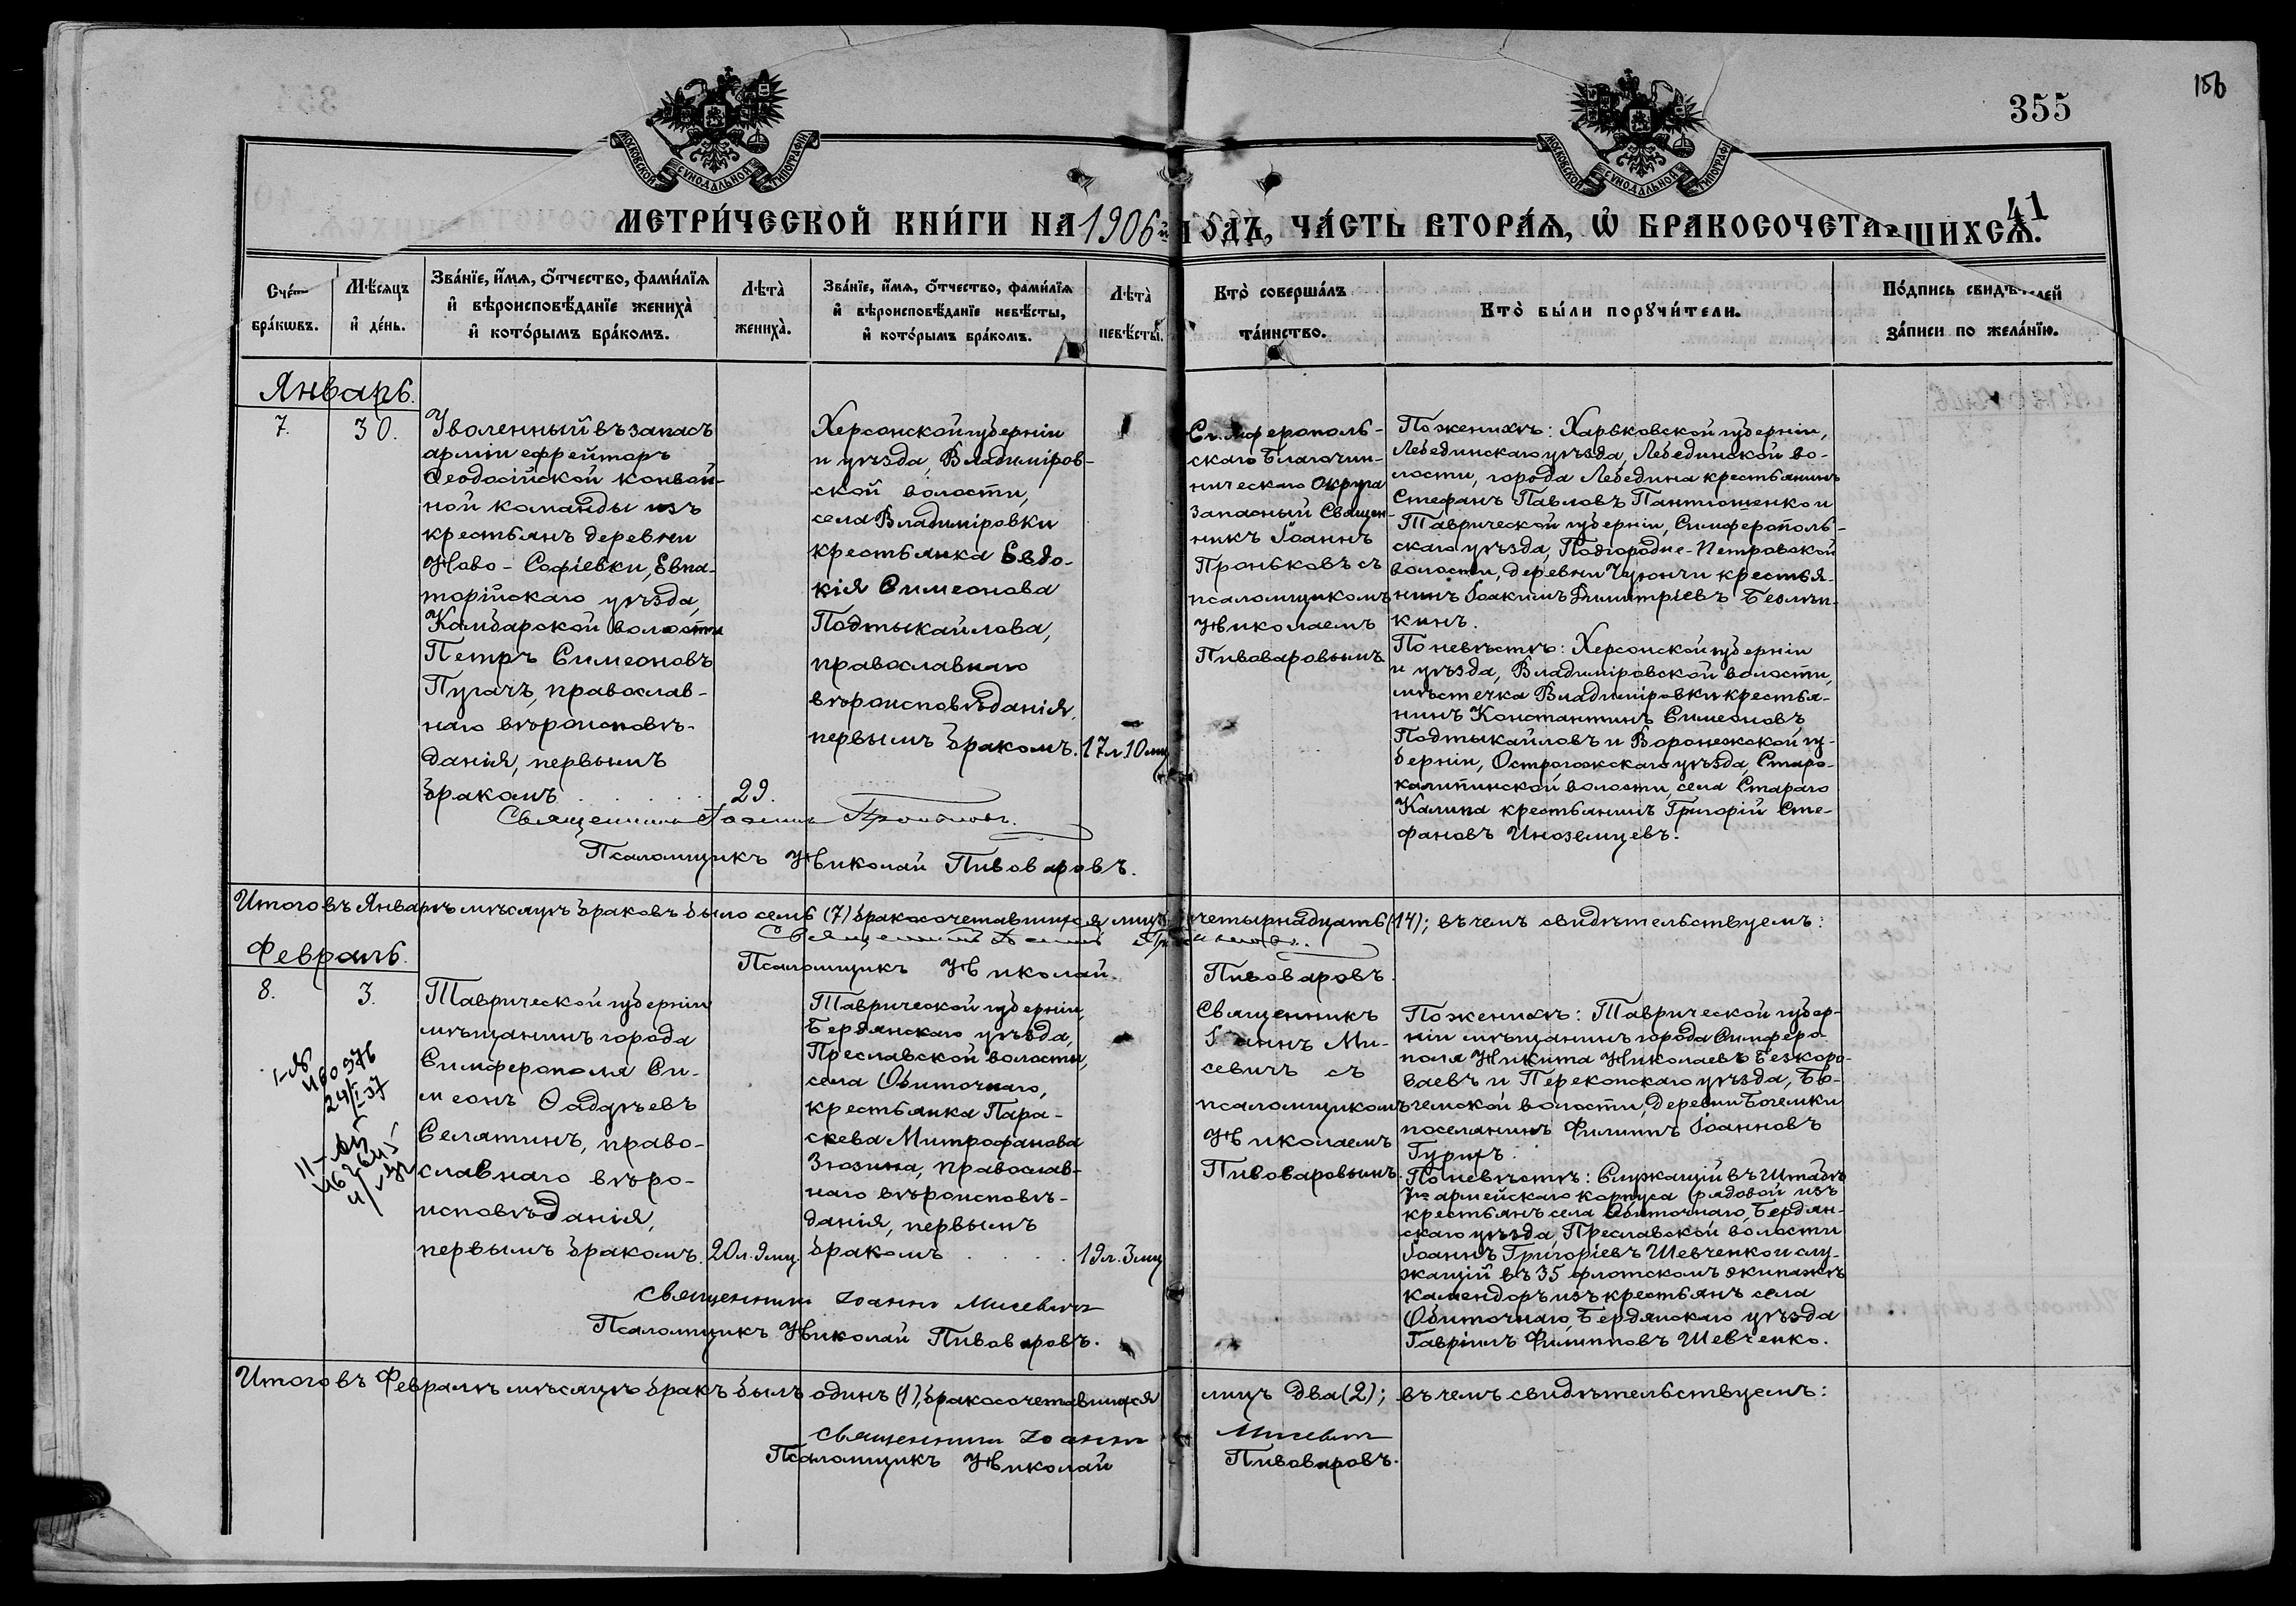 156
355
41
МОСКОВСКОЙ СѴНОДАЛЬНОЙ ТИПОГРАФІИ
МОСКОВСКОЙ СѴНОДАЛЬНОЙ ТИПОГРАФІИ
МЕТРИ́ЧЕСКОЙ КНИ́ГИ НА 1906й ГО́ДЪ, ЧА́СТЬ ВТОРА́Ѧ, Ѽ БРАКОСОЧЕТАВШИХСѦ.
Сче́тъ
бра́кѡвъ.
Мѣ́сяцъ
и҆ де́нь.
Зва́нїе, и҆́мѧ, ѻ҆́тчество, фами́лїѧ
и҆ вѣроисповѣ́данїе жениха̀
и҆ кото́рымъ бра́комъ.
Лѣта̀
жениха̀.
Зва́нїе, и҆́мѧ, ѻ҆́тчество, фами́лїѧ
и҆ вѣроисповѣ́данїе невѣ́сты,
и҆ кото́рымъ бра́комъ.
Лѣта̀
невѣ́сты.
Кто̀ соверша́лъ
та́инство.
Кто̀ бы́ли порꙋчи́тели.
По́дпись свидѣтелей
за́писи по жела́нїю.
Январь.
7.
30.
Уволенный въ запасъ
арміи ефрейторъ
Ѳеодосійской конвой-
ной команды изъ
крестьянъ деревни
Ново-Софіевки, Евпа-
торійскаго уѣзда,
Камбарской волости
Петръ Симеоновъ
Пугачъ, православ-
наго вѣроисповѣ-
данія, первымъ
бракомъ . . . .
29.
Херсонской губерніи
и уѣзда, Владиміров-
ской волости,
села Владиміровки
крестьянка Евдо-
кія Симеонова
Подтыкайлова,
православнаго
вѣроисповѣданія,
первымъ бракомъ.
17 л. 10 мц
Симферополь-
скаго Благочин-
ническаго Округа
Запасный Священ-
никъ Іоаннъ
Проньковъ съ
псаломщикомъ
Николаемъ
Пивоваровымъ
По женихѣ: Харьковской губерніи,
Лебединскаго уѣзда, Лебединской во-
лости, города Лебедина крестьянинъ
Стефанъ Павловъ Пантюшенко и
Таврической губерніи, Симферополь-
скаго уѣзда, Подгородне-Петровской
волости, деревни Чуюнчи крестья-
нинъ Іоакимъ Димитріевъ
кинъ.
По невѣстѣ: Херсонской губерніи
и уѣзда, Владиміровской волости,
мѣстечка Владиміровки крестья-
нинъ Константинъ Симеоновъ
Подтыкайловъ и Воронежской гу-
берніи, Острогожскаго уѣзда, Старо-
калитвинской волости, села Стараго
Калитва крестьянинъ Григорій Сте-
фановъ Иноземцевъ.
Священникъ Іоаннъ Проньковъ.
Псаломщикъ Николай Пивоваровъ.
Итого въ Январѣ мѣсяцѣ браковъ было семь (7) бракосочетавшихся лицъ четырнадцать (14); въ чемъ свидѣтельствуемъ:
Священникъ Іоаннъ Проньковъ.
Псаломщикъ Николай Пивоваровъ.
Февраль.
8.
3.
I-АЯ
460976
24/I-37
Таврической губерніи
мѣщанинъ города
Симферополя Си-
меонъ Ѳаддѣевъ
Селятинъ, право-
славнаго вѣро-
исповѣданія,
первымъ бракомъ.
20 л. 9 мц.
Таврической губерніи,
Бердянскаго уѣзда,
Преславской волости,
села Обиточнаго,
крестьянка Пара-
скева Митрофанова
Зюзина, православ-
наго вѣроисповѣ-
данія, первымъ
бракомъ . . . .
19 л. 3 мц
Священникъ
Іоаннъ Ми-
севичъ съ
псаломщикомъ
Николаемъ
Пивоваровымъ.
По женихѣ: Таврической губер-
ніи мѣщанинъ города Симферо-
поля Никита Николаевъ Безкоро-
ваевъ и Перекопскаго уѣзда, Бо-
гемской волости, деревни Богемки
поселянинъ Филиппъ Іоанновъ
Гуринъ.
По невѣстѣ: Служащій въ Штабѣ
7го армейскаго корпуса рядовой изъ
крестьянъ села Обиточнаго, Бердян-
скаго уѣзда, Преславской волости
Іоаннъ Григоріевъ Шевченко и слу-
жащій въ 35 флотскомъ экипажѣ
комендоръ изъ крестьянъ села
Обиточнаго, Бердянскаго уѣзда
Гавріилъ Филипповъ Шевченко.
Священникъ Іоаннъ Мисевичъ
Псаломщикъ Николай Пивоваровъ.
Итого въ Февралѣ мѣсяцѣ бракъ былъ одинъ (1), бракосочетавшихся лицъ два (2); въ чемъ свидѣтельствуемъ:
Священникъ Іоаннъ Мисевичъ
Псаломщикъ Николай Пивоваровъ.